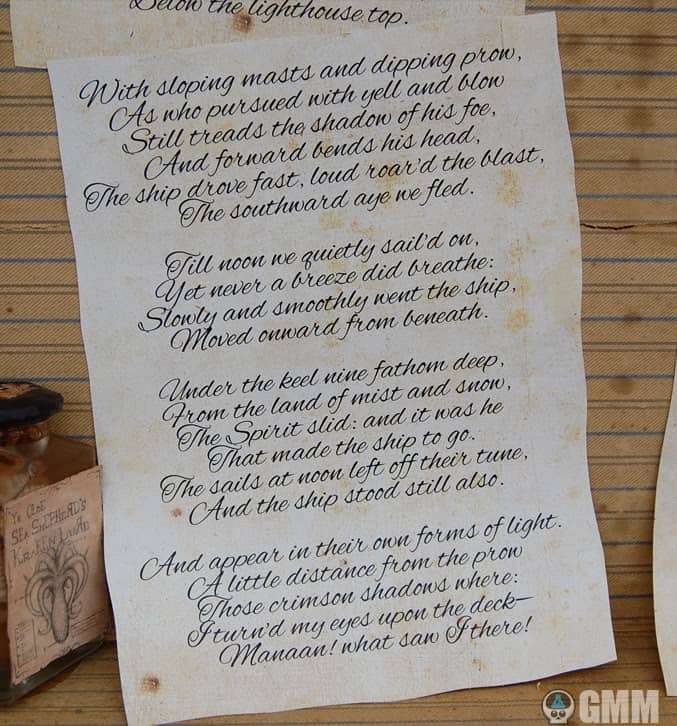 Below the lighthouse top.
With sloping masts and dipping prow,
As who pursued with yell and blow
Still treads the shadow of his foe,
And forward bends his head,
The ship drove fast, loud roar'd the blast,
The southward aye we fled.
Till noon we quietly sail'd on,
Yet never a breeze did breathe:
Slowly and smoothly went the ship,
Moved onward from beneath.
Under the keel nine fathom deep,
From the land of mist and snow,
The Spirit slid: and it was he
That made the ship to go.
The sails at noon left off their tune,
And the ship stood still also.
And appear in their own forms of light.
A little distance from the prow
Those crimson shadows where:
I turn'd my eyes upon the deck—
Manaan! what saw I there!
Ye Olde
Sea Shepherd's
Kraken
GMM